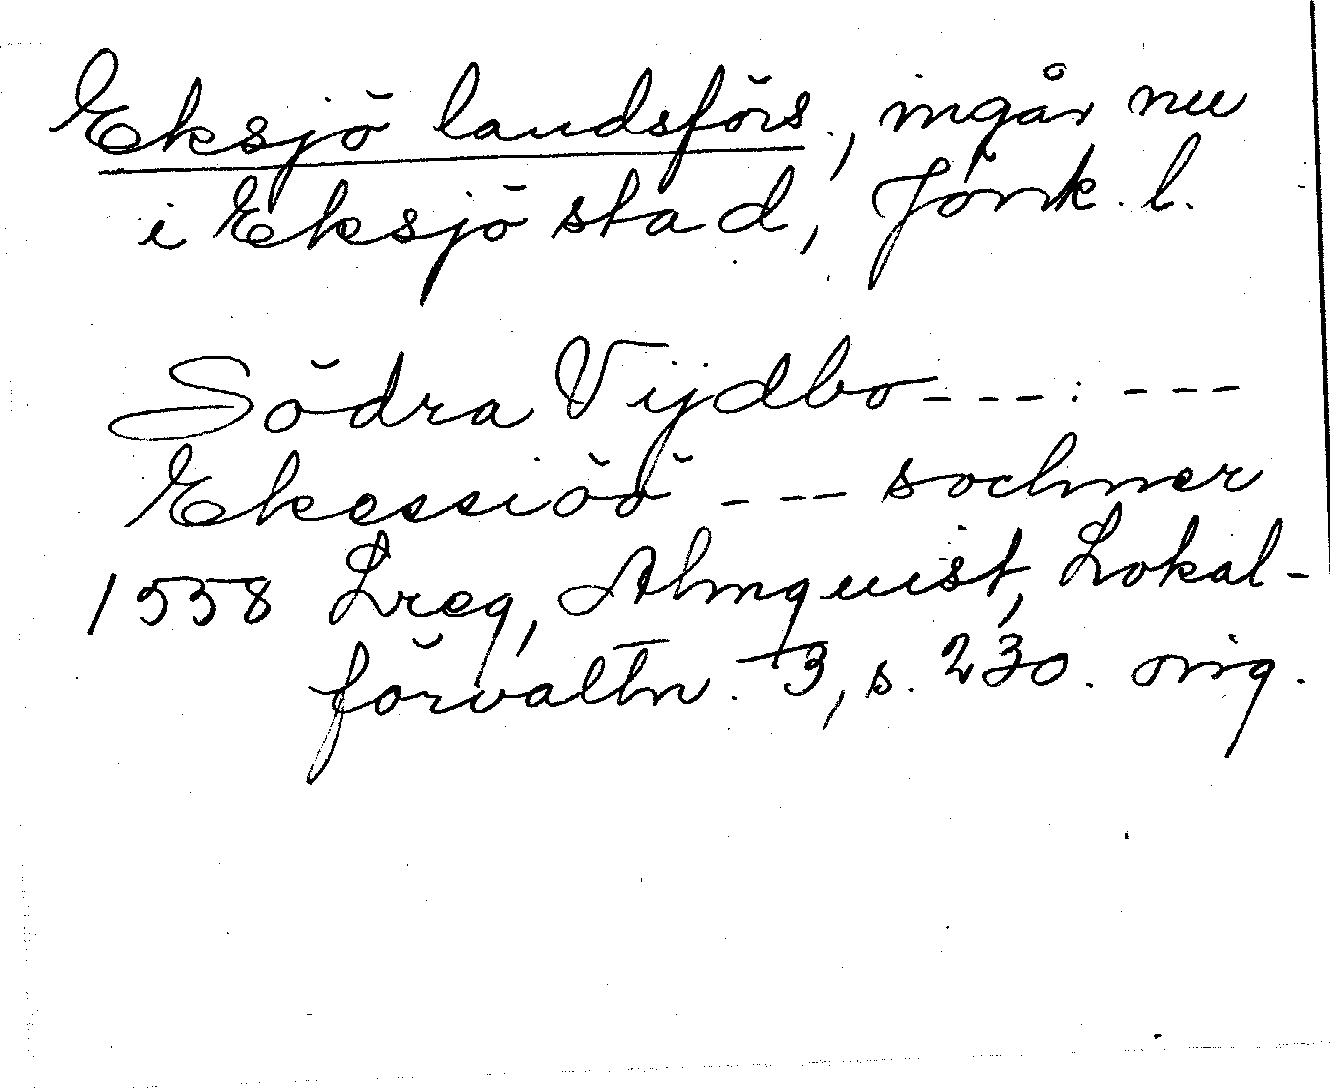 Eksjö landsförs., ingår nu
i Eksjö stad, Jönk. l.
Södra Vijdbo---: ---
Ekessiöö --- sochner
1558 Lreg, Almquist, Lokal-
förvaltn. 3, s. 230. orig.